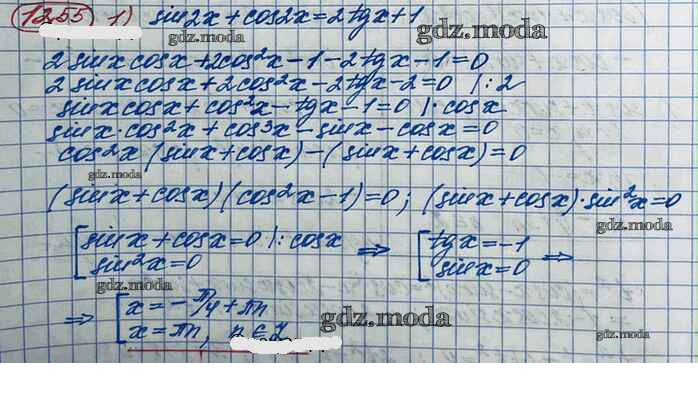 1255 1) sin2x + cos2x = 2tgx + 1
gdz.moda
2 sinx cosx + 2cos²x - 1 - 2tgx - 1 = 0
2 sinx cosx + 2cos²x - 2tgx - 2 = 0 |:2
sinx cosx + cos²x - tgx - 1 = 0 |· cosx
gdz.moda
sinx·cos²x + cos³x - sinx - cosx = 0
cos²x (sinx + cosx) - (sinx + cosx) = 0
gdz.moda
(sinx + cosx)(cos²x - 1) = 0; (sinx + cosx)·sin²x = 0
gdz.moda
[ sinx + cosx = 0 |: cosx ⇒ [ tgx = -1
sin²x = 0 sinx = 0 ⇒
gdz.moda
⇒ [ x = -π/4 + πn
x = πn, n ∈ Z
gdz.moda
gdz.moda